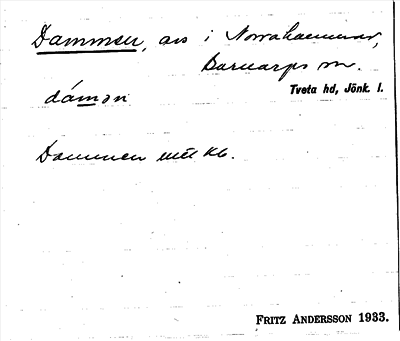 Dammen, avs i Norrahammar,
Barnarps sn.
Tveta hd, Jönk. l.
dámən
Dammen
FRITZ ANDERSSON 1933.